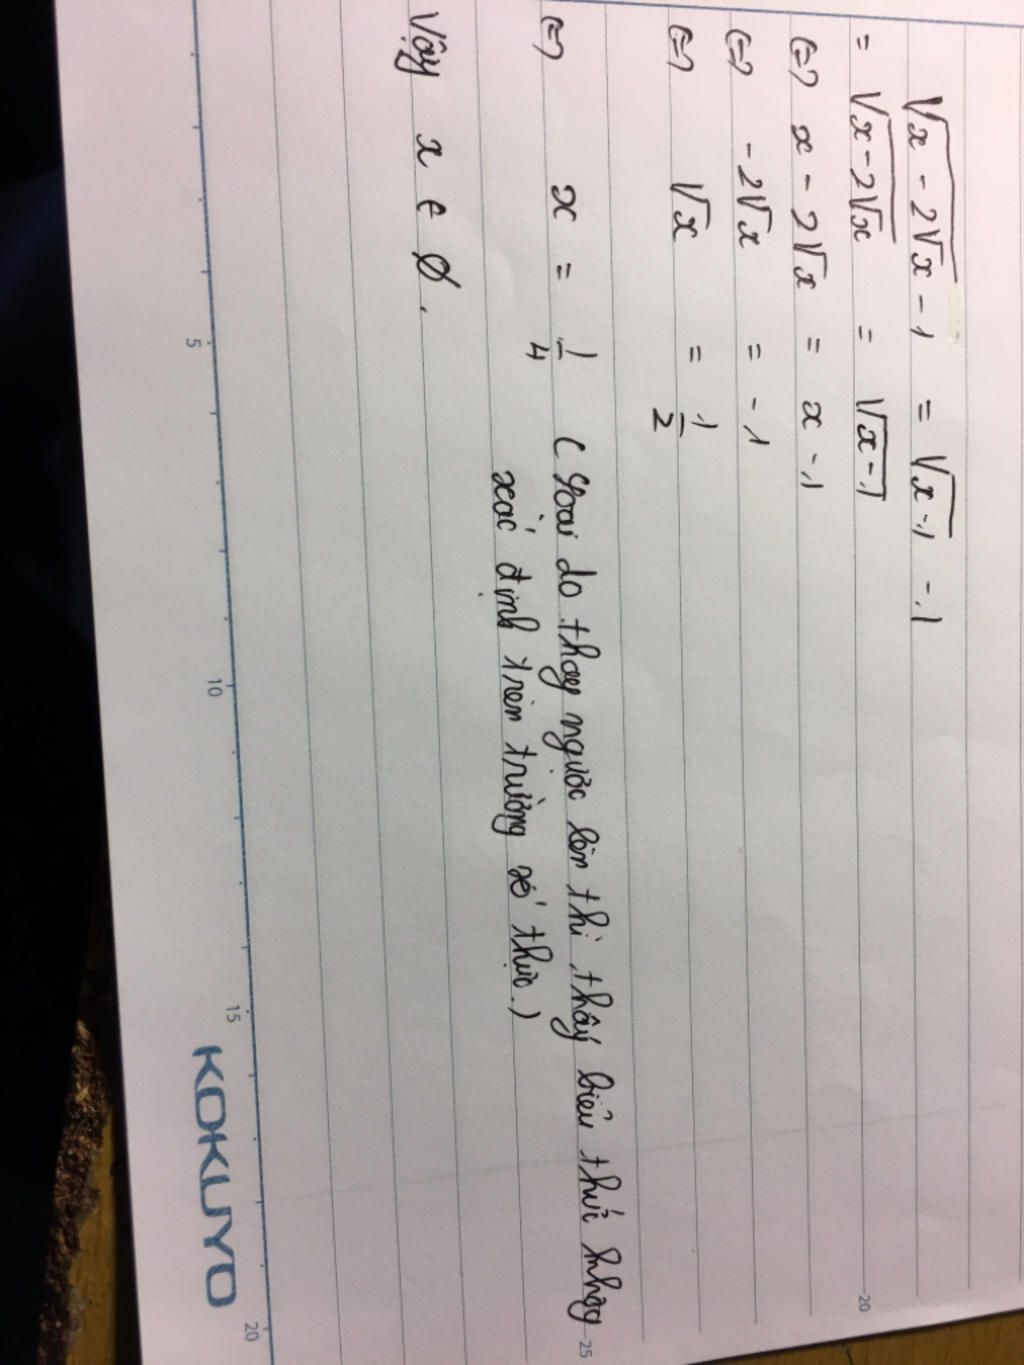 √(x - 2√x) - 1 = √(x - 1) - 1
= √(x - 2√x) = √(x - 1)
(=) x - 2√x = x - 1
(=) - 2√x = - 1
(=) √x = 1/2
(=) x = 1/4 (loại do thay ngược lên thì thấy biểu thức không
xác định trên trường số thực.)
Vậy x ∈ ∅.
5 10 15 20
20
25
KOKUYO